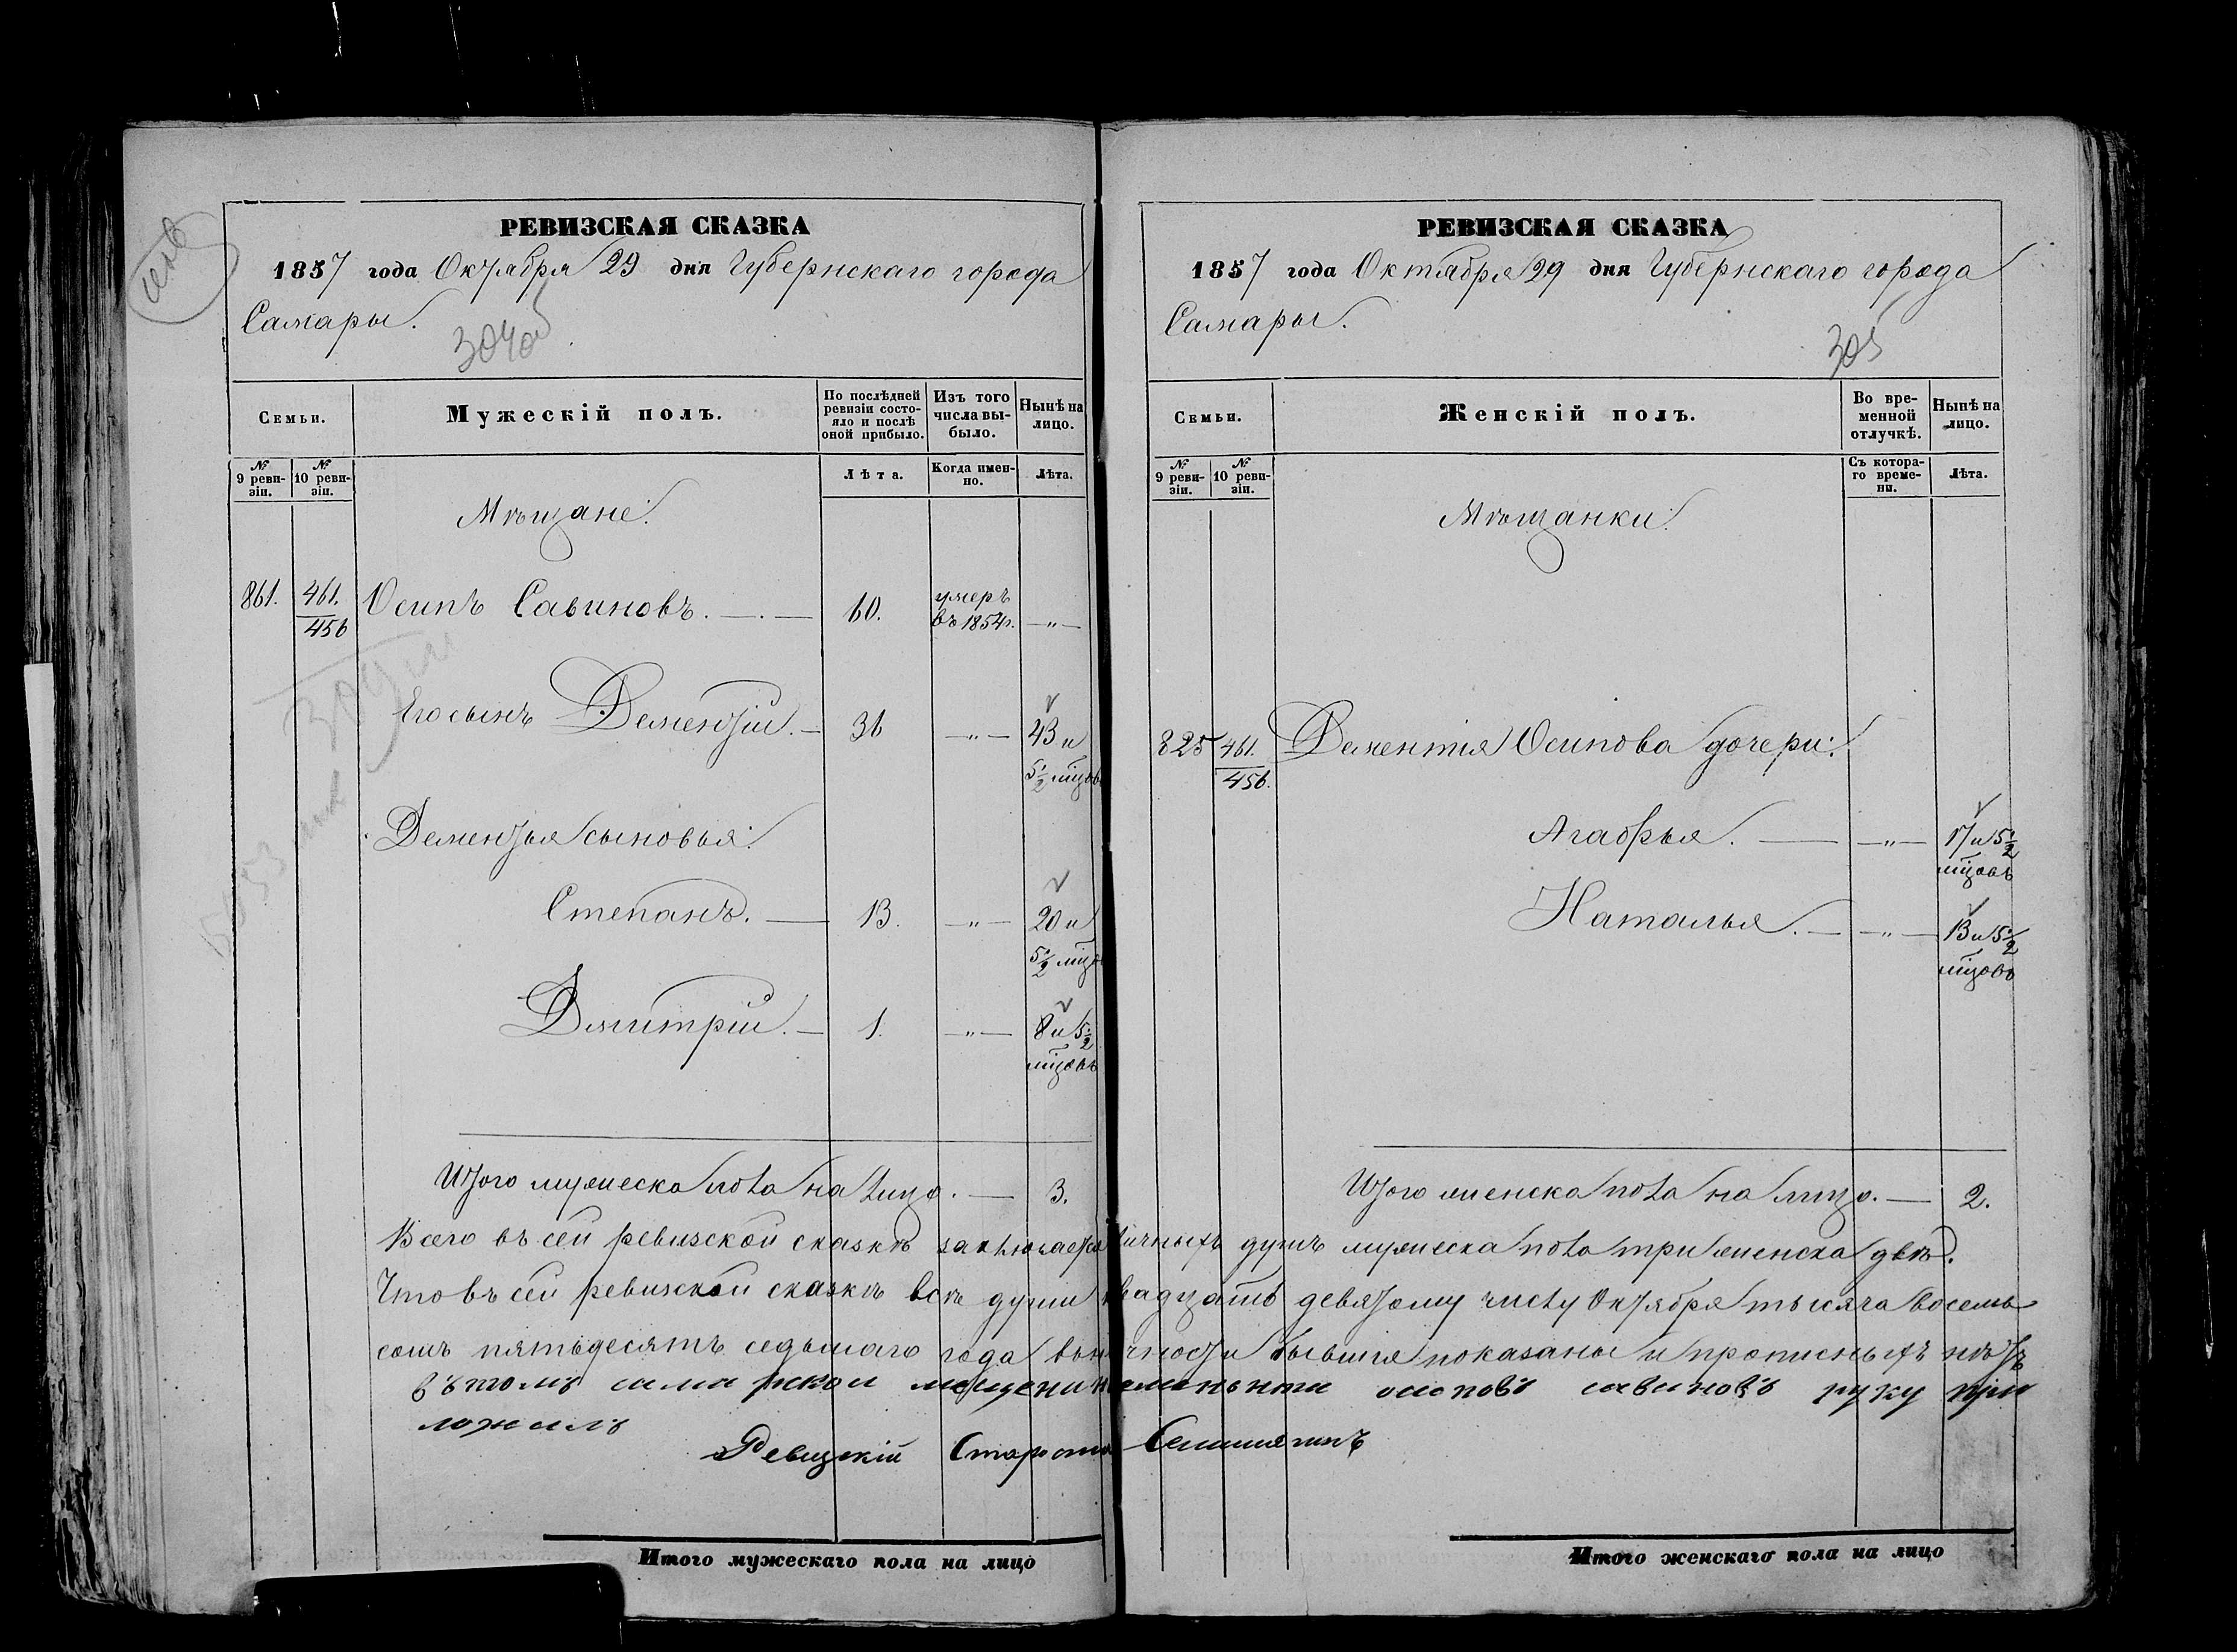 РЕВИЗСКАЯ СКАЗКА
1857 года Октября 29 дня Губернскаго города
Самары.
304об
Семьи.
Мужескій полъ.
По послѣдней ревизіи состояло и послѣ оной прибыло.
Изъ того числа выбыло.
Нынѣ на лицо.
№ 9 ревизіи.
№ 10 ревизіи.
Лѣта.
Когда именно.
Лѣта.
Мѣщане:
861. 461./456 Осипъ Савиновъ. — 60. умеръ въ 1854г. —"—
Его сынъ Дементій. — 36 —"— 43 и 5½ мцовъ
Дементья сыновья:
Степанъ. — 13. —"— 20 и 5½ мцов
Дмитрій. — 1. —"— 8 и 5½ мцовъ
Итого мужеска пола на лицо. — 3.
РЕВИЗСКАЯ СКАЗКА
1857 года Октября 29 дня Губернскаго города
Самары.
305
Семьи.
Женскій полъ.
Во временной отлучкѣ.
Нынѣ на лицо.
№ 9 ревизіи.
№ 10 ревизіи.
Съ котораго времени.
Лѣта.
Мѣщанки:
825 461./456. Дементія Осипова дочери:
Агафья. — —"— 17 и 5½ мцовъ
Наталья. — —"— 13 и 5½ мцовъ
Итого женска пола на лицо. — 2.
Всего въ сей ревизской сказкѣ заключается личныхъ душъ мужеска пола три женска двѣ.
Что въ сей ревизской сказкѣ всѣ души двадцать девятому числу Октября тысяча восемь
сотъ пятьдесятъ седьмаго года въ личности бывшія показаны и прописныхъ нѣтъ
вътомъ самарской мещенин осиповъ савиновъ руку при
ложилъ
Ревизкій Староста
Итого мужескаго пола на лицо
Итого женскаго пола на лицо